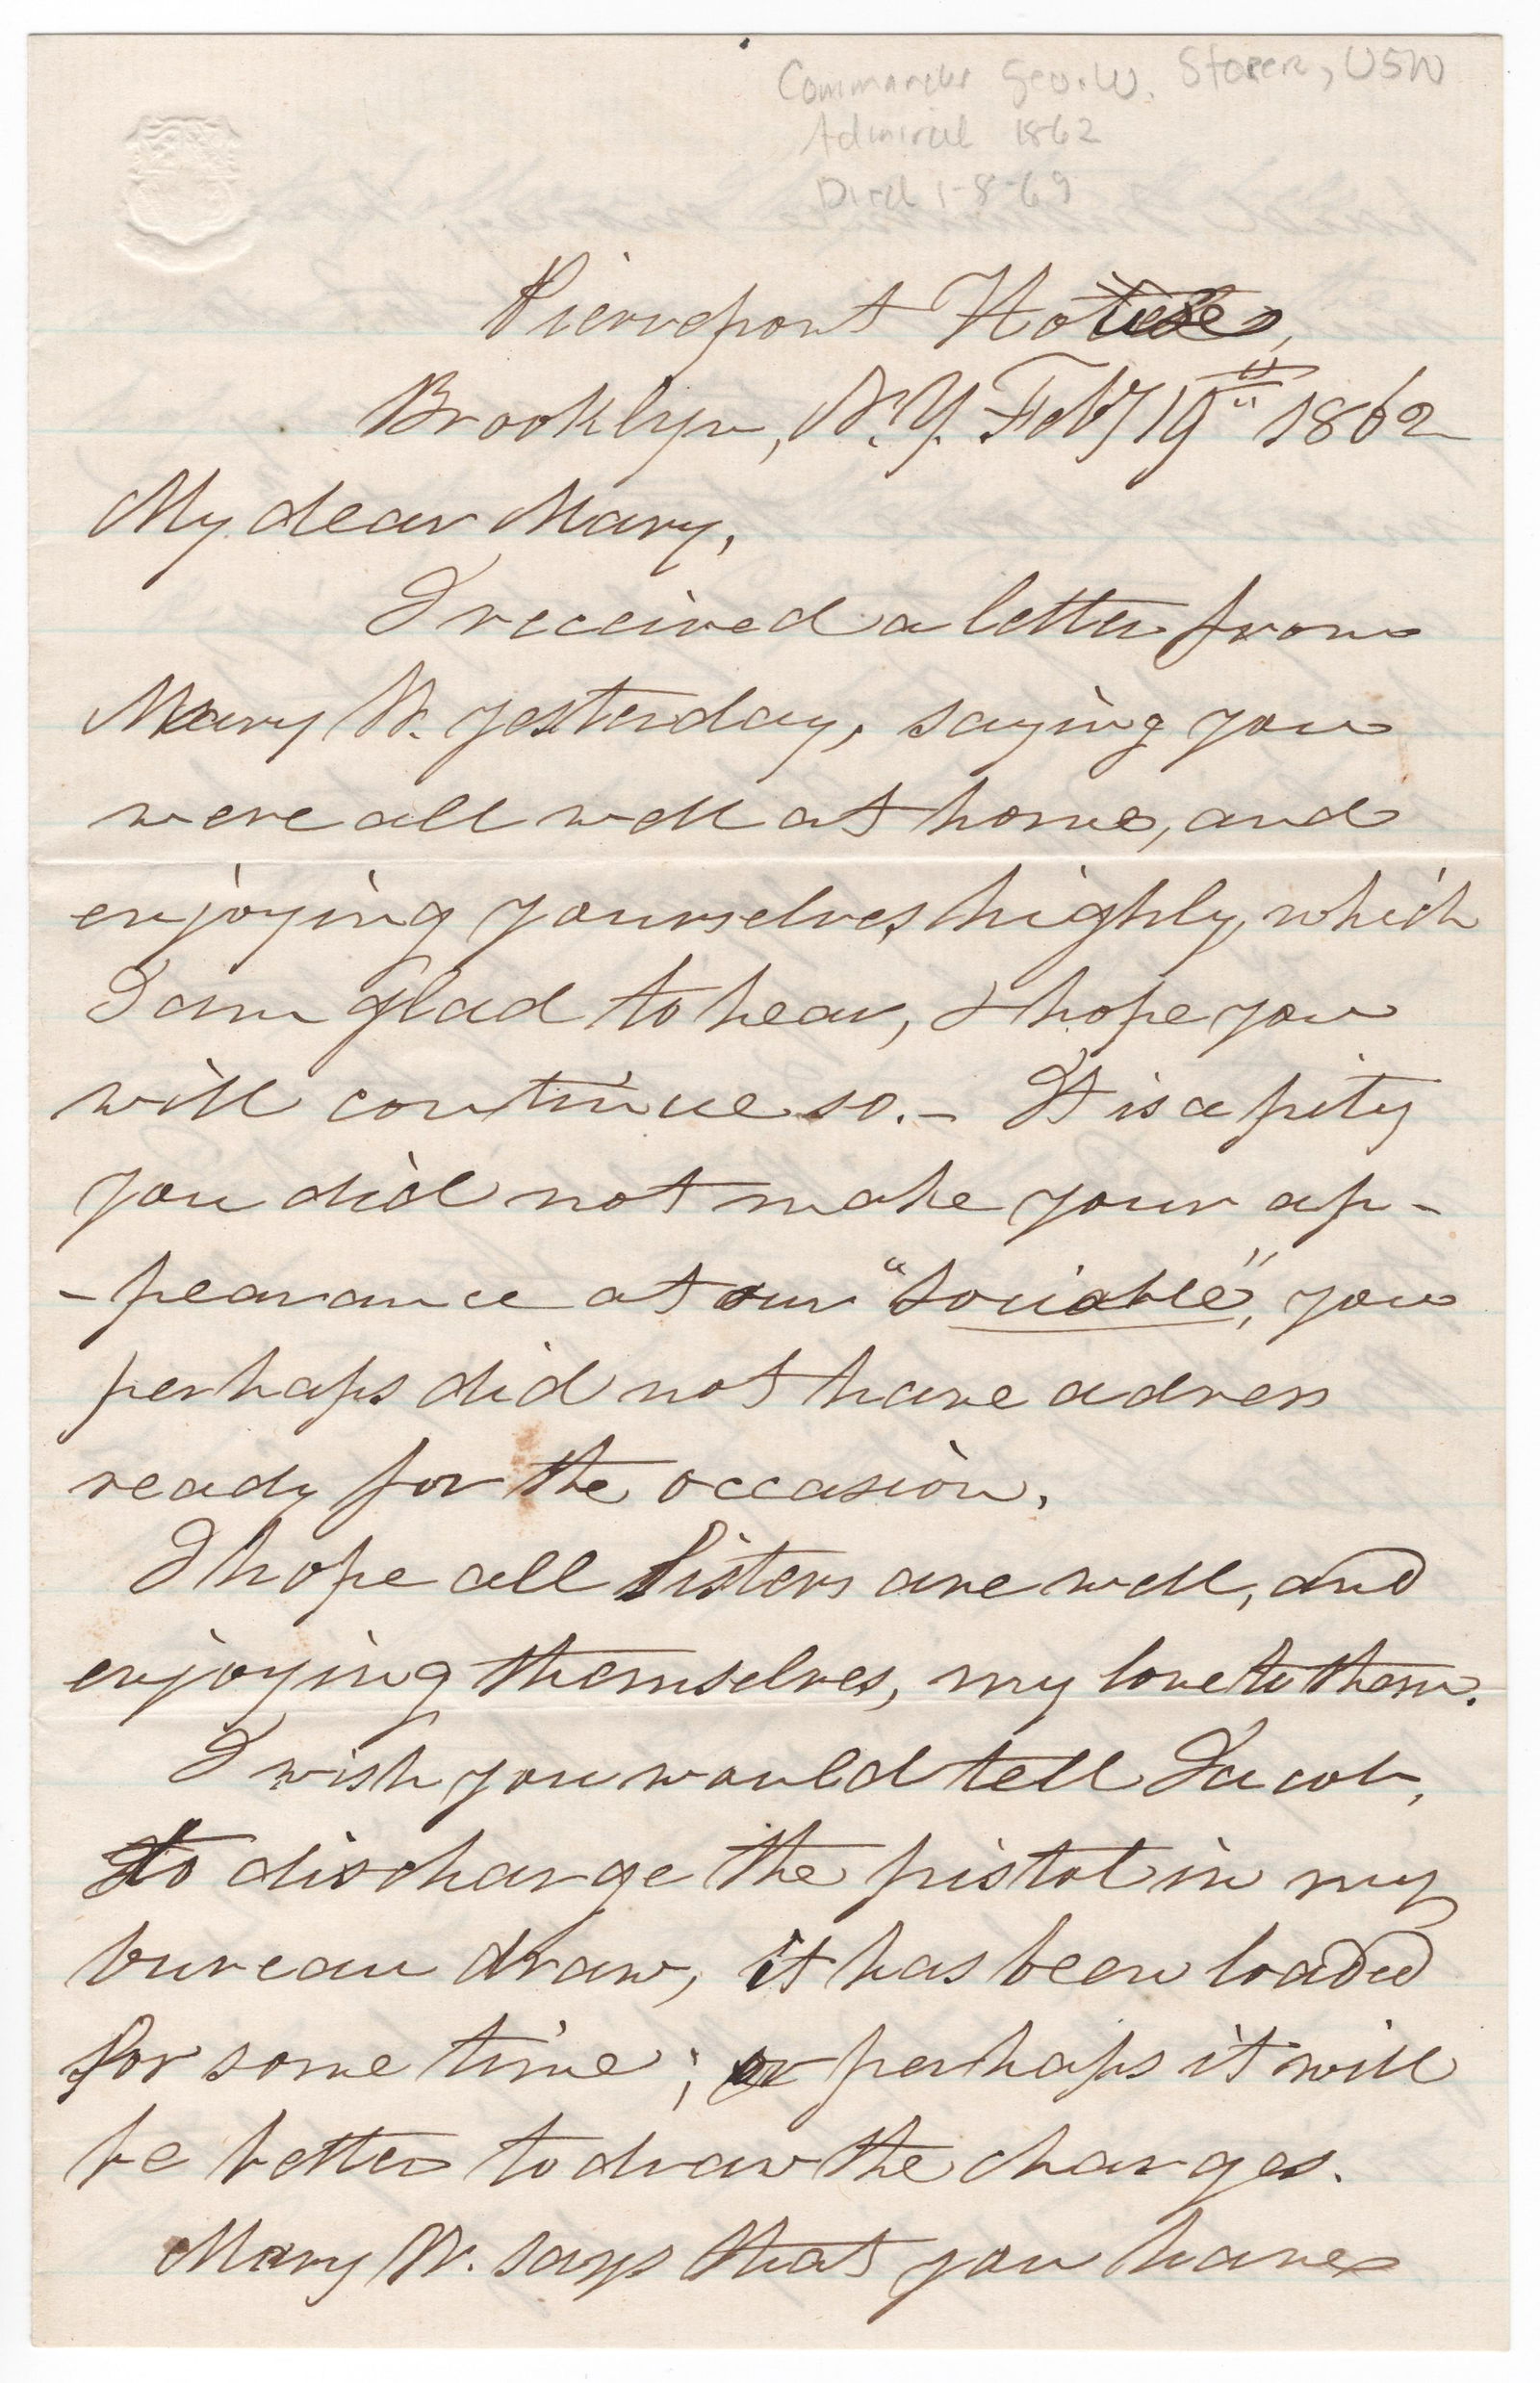 Commander Geo. W. Storer, USN
Admiral 1862
Died 1-8-69
Pierrepont House,
Brooklyn, N.Y. Feby 19th 1862
My dear Mary,
I received a letter from
Mary W. yesterday, saying you
were all well at home, and
enjoying yourselves highly, which
I am glad to hear, & hope you
will continue so. – It is a pity
you did not make your ap-
-pearance at our "Sociable", you
perhaps did not have a dress
ready for the occasion.
I hope all Sisters are well, and
enjoying themselves, my love to them.
I wish you would tell Jacob,
to discharge the pistol in my
bureau draw, it has been loaded
for some time; or perhaps it will
be better to draw the charges.
Mary W. says that you have